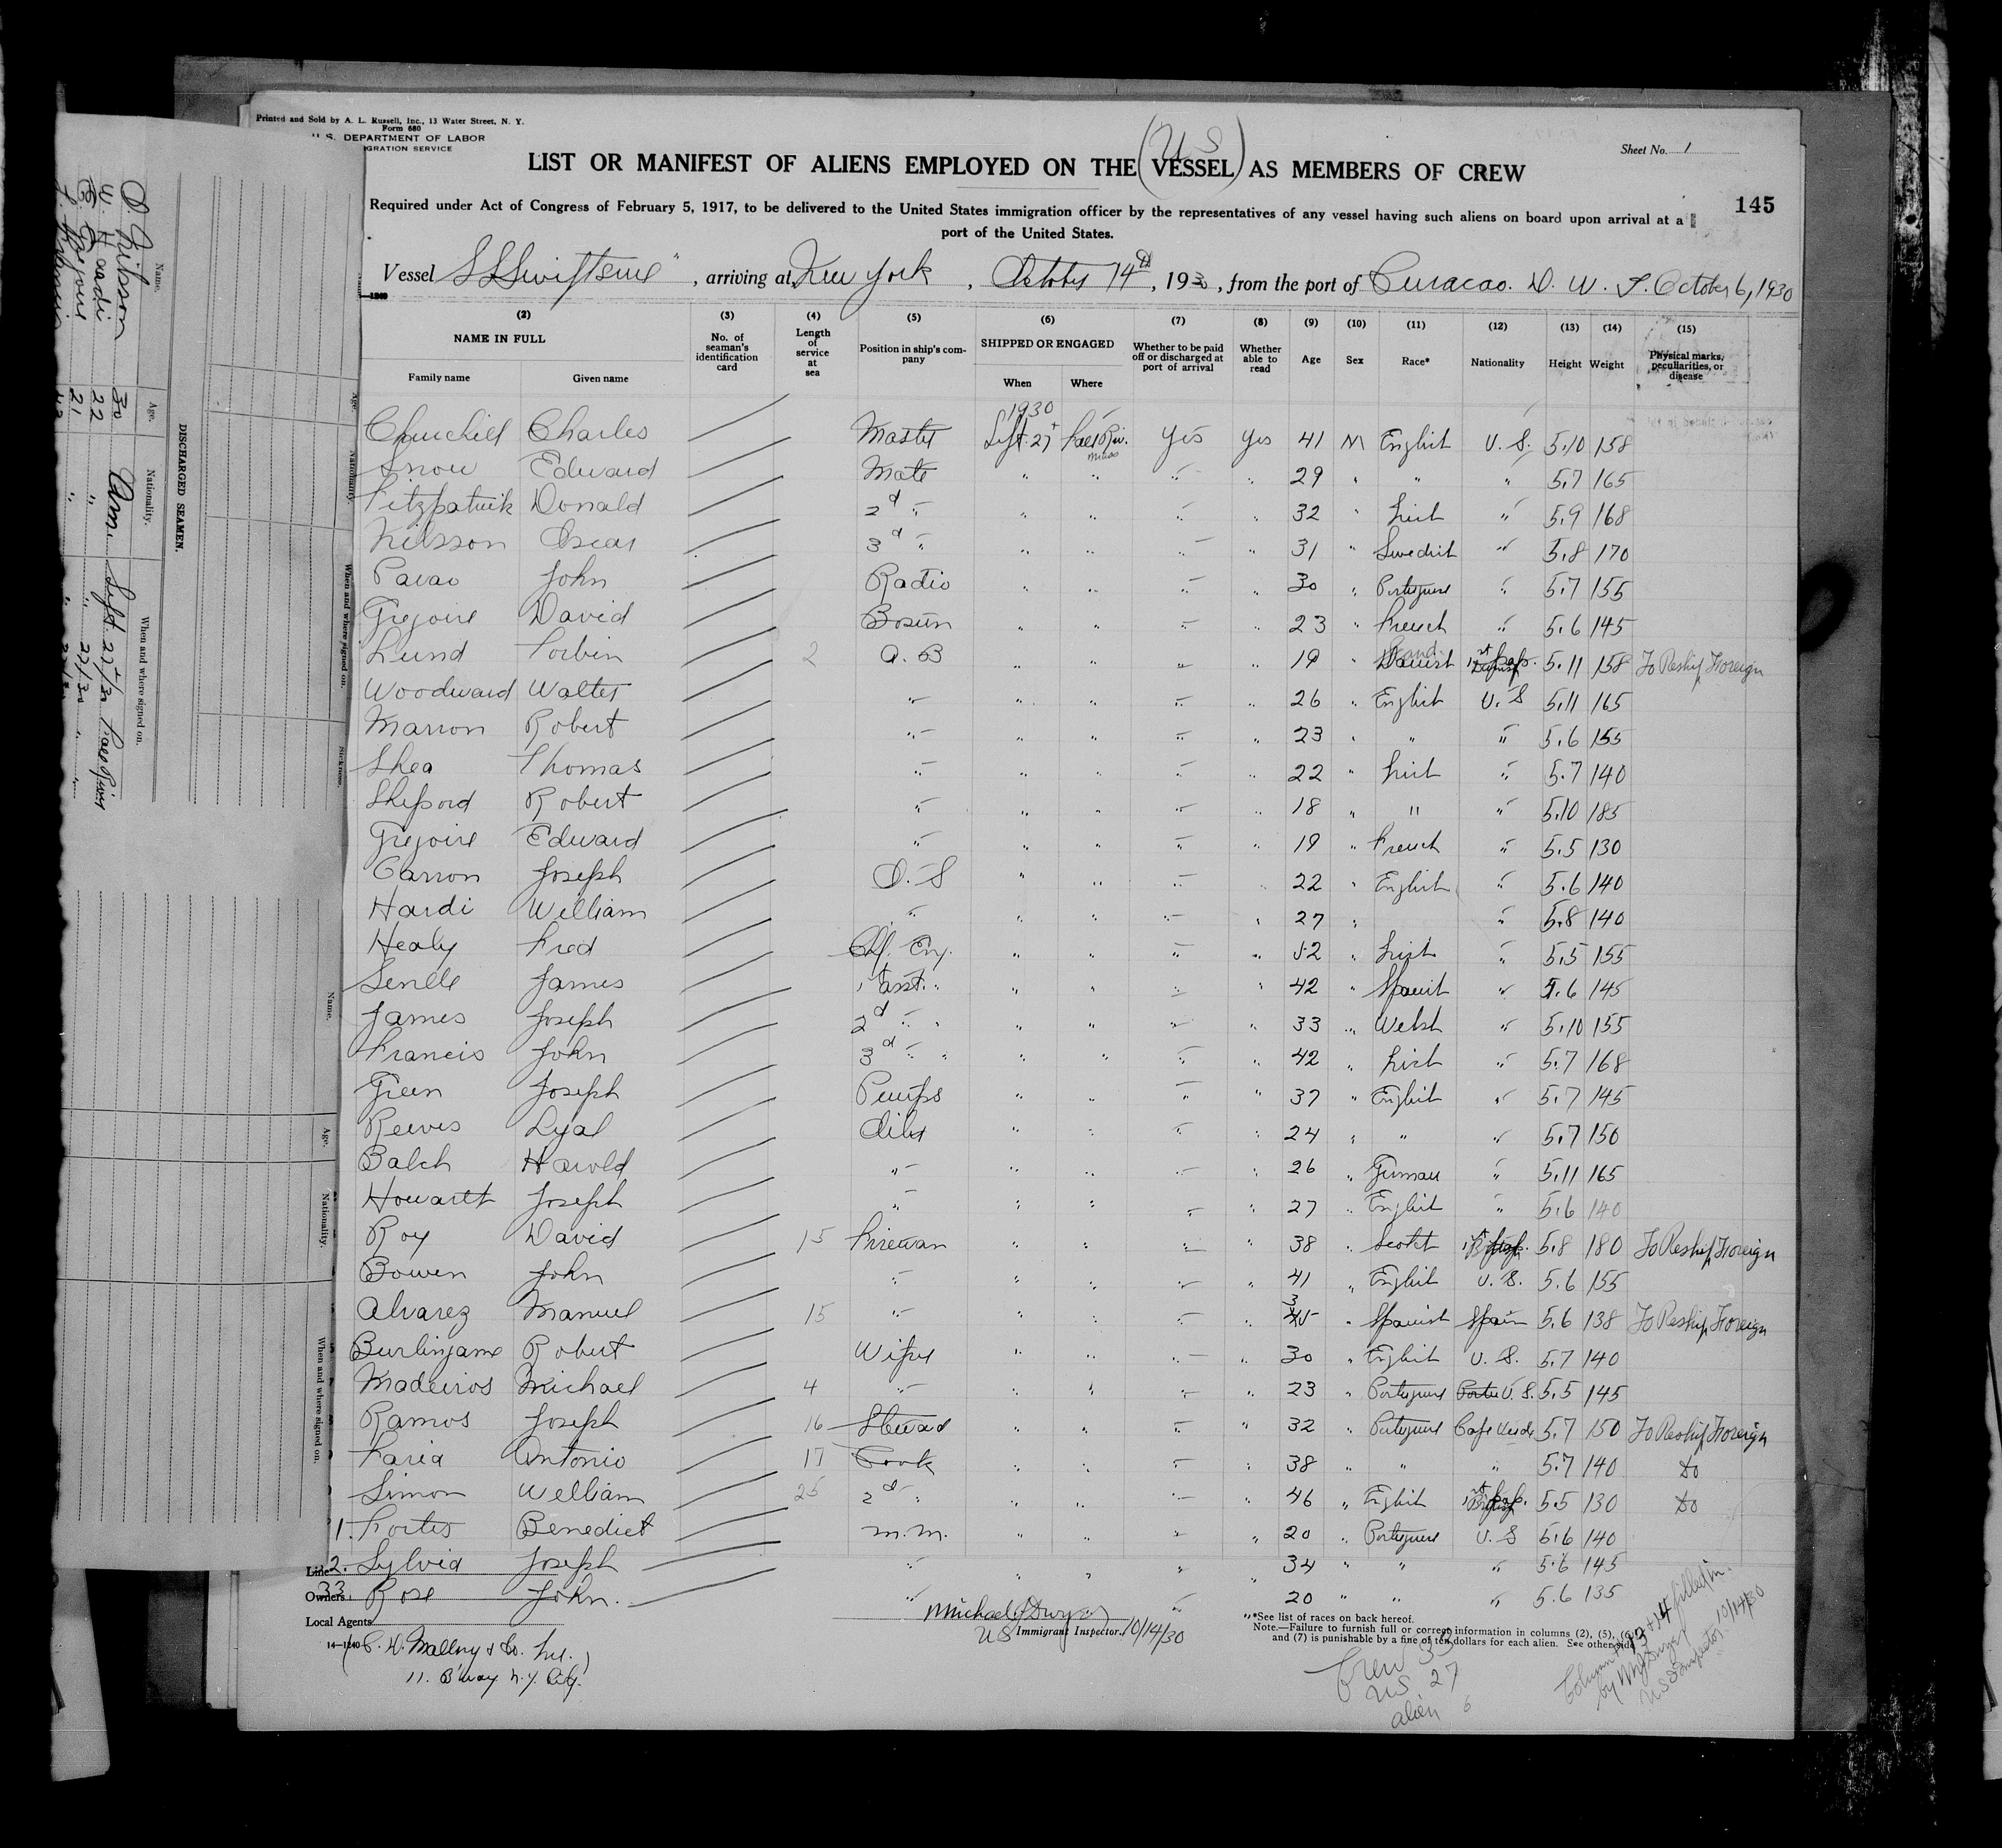 Printed and Sold by A. L. Russell, Inc., 13 Water Street, N. Y.
Form 680
U. S. DEPARTMENT OF LABOR
IGRATION SERVICE
(US)
Sheet No. 1
LIST OR MANIFEST OF ALIENS EMPLOYED ON THE VESSEL AS MEMBERS OF CREW
145
Required under Act of Congress of February 5, 1917, to be delivered to the United States immigration officer by the representatives of any vessel having such aliens on board upon arrival at a
port of the United States.
Vessel , arriving at New York, 14th, 1930, from the port of Curacao. D. W. I. October 6, 1930
(2) (3) (4) (5) (6) (7) (8) (9) (10) (11) (12) (13) (14) (15)
NAME IN FULL No. of seaman's identification card Length of service at sea Position in ship's company SHIPPED OR ENGAGED Whether to be paid off or discharged at port of arrival Whether able to read Age Sex Race* Nationality Height Weight Physical marks, peculiarities, or disease
Family name Given name When Where
1930
Churchill Charles Master Sept. 27 Fall Riv. Mass Yes Yes 41 M English U. S. 5.10 158
Snow Edward Mate " " " " 29 " " " 5.7 165
Fitzpatrick Donald 2d " " " " " 32 " Irish " 5.9 168
Nilsson Oscar 3d " " " " " 31 " Swedish " 5.8 170
Pavao John Radio " " " " 30 " Portuguese " 5.7 155
Gregoire David Bosun " " " " 23 " French " 5.6 145
Lund Torbin 2 A. B " " " " 19 " Danish 1st pap. 5.11 158 To Reship Foreign
Woodward Walter " " " " " 26 " English U. S 5.11 165
Marron Robert " " " " " 23 " " " 5.6 155
Shea Thomas " " " " " 22 " Irish " 5.7 140
Robert " " " " " 18 " " " 5.10 185
Gregoire Edward " " " " " 19 " French " 5.5 130
Carron Joseph O. S " " " " 22 " English " 5.6 140
Hardi William " " " " " 27 " " 5.8 140
Healy Fred Chf. Eng. " " " " 52 " Irish " 5.5 155
James 1st asst. " " " " " 42 " Spanish " 5.6 145
James Joseph 2d " " " " " " 33 " Welsh " 5.10 155
Francis John 3d " " " " " " 42 " Irish " 5.7 168
Green Joseph Pumps " " " " 37 " English " 5.7 145
Reeves Lyal Oiler " " " " 24 " " " 5.7 150
Balch Harold " " " " " 26 " German " 5.11 165
Howarth Joseph " " " " " 27 " English " 5.6 140
Roy David 15 Fireman " " " " 38 " Scotch 1st pap. 5.8 180 To Reship Foreign
Bowen John " " " " " 41 " English U. S. 5.6 155
Alvarez Manuel 15 " " " " " 35 " Spanish Spain 5.6 138 To Reship Foreign
Burlingame Robert Wiper " " " " 30 " English U. S. 5.7 140
Madeiros Michael 4 " " " " " 23 " Portuguese U. S. 5.5 145
Ramos Joseph 16 Steward " " " " 32 " Portuguese Cape Verde 5.7 150 To Reship Foreign
Faria Antonio 17 Cook " " " " 38 " " " 5.7 140 Do
Simon William 25 2d " " " " " 46 " English 1st pap. 5.5 130 Do
1. Fortes Benedict M.M. " " " " 20 " Portuguese U. S 5.6 140
Line 2. Sylvia Joseph " " " " " 34 " " " 5.6 145
33 Rose John. " " 20 " " " 5.6 135
Owners
Local Agents
Michael J Dwyer
US Immigrant Inspector. 10/14/30
14-1240
C. D. Mallory & Co. Inc.
11. B'way N.Y. City.
*See list of races on back hereof.
Note.—Failure to furnish full or correct information in columns (2), (5), (6)
and (7) is punishable by a fine of ten dollars for each alien. See other side
Crew 33
US 27
alien 6
Columns 13 + 14 filled in
by M J Dwyer
US Inspector 10/14/30
DISCHARGED SEAMEN.
Name. Age. Nationality. When and where signed on.
O. Nilsson 30 Am. Sept. 27/30 Fall River
W. Hardi 22 " " 27/30 "
E. Gregoire 21 " " 27/30 "
42
Age. Nationality. When and where signed on. Sickness.
Name. Age. Nationality. When and where signed on.